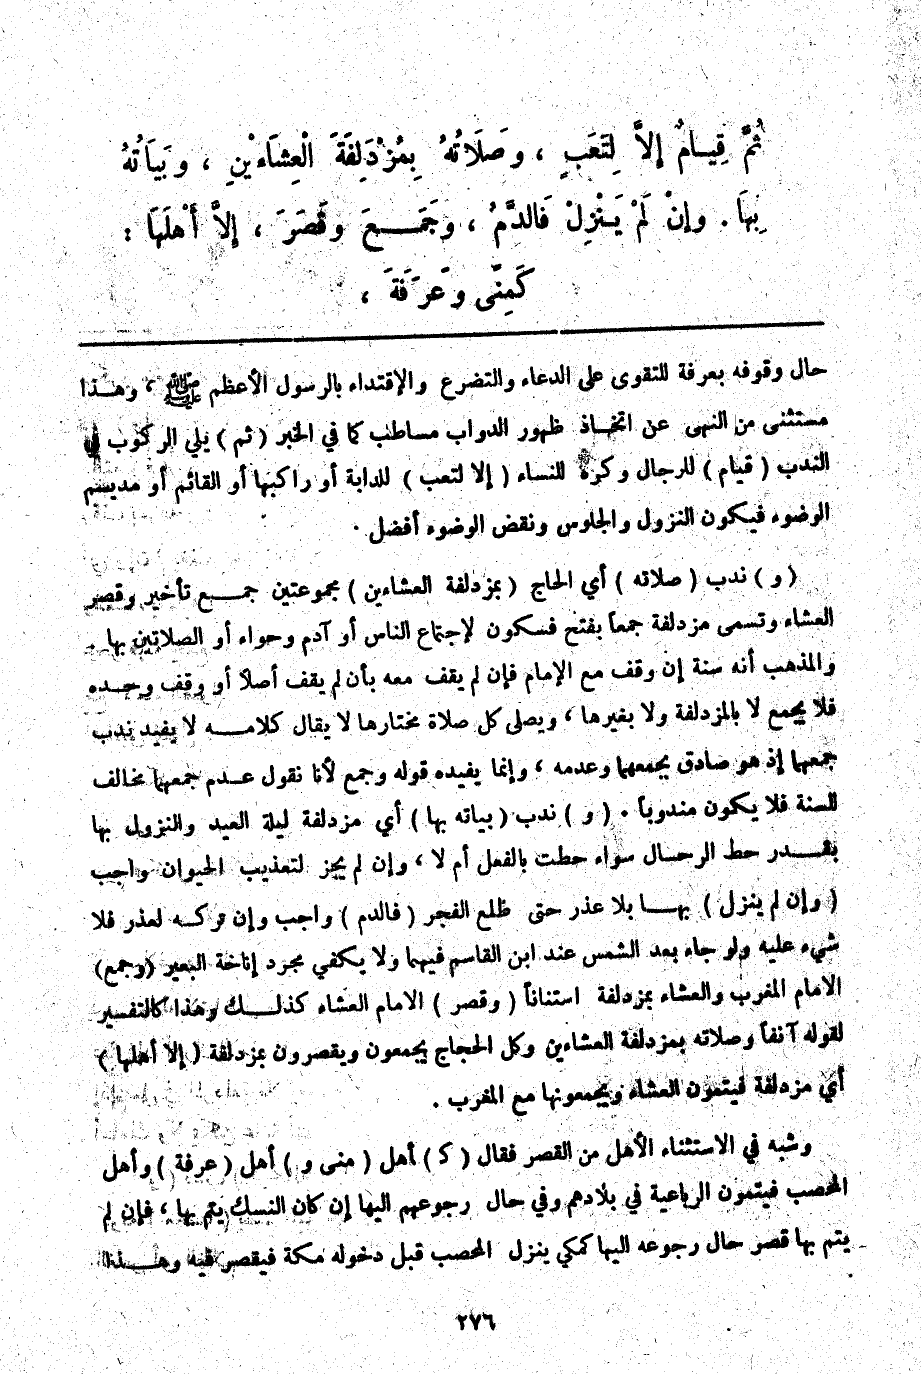 ثُمَّ قِيَامٌ إلاَّ لِتَعَبٍ ، وصَلَاتُهُ بِمُزْدَلِفَةَ الْعِشَاءَيْنِ ، وبَيَاتُهُ
بِهَا . وإنْ لَمْ يَنْزِلْ فَالدَّمُ ، وجَمَعَ وقَصَرَ ، إلاَّ أَهْلَهَا :
كَمِنًى وعَرَفَةَ ،
حال وقوفه بعرفة للتقوى على الدعاء والتضرع والإقتداء بالرسول الأعظم ﷺ ، وهذا
مستثنى من النهى عن اتخاذ ظهور الدواب مساطب كما في الخبر ( ثم ) يلي الركوب في
الندب ( قيام ) للرجال وكره للنساء ( إلا لتعب ) للدابة أو راكبها أو القائم أو مديم
الوضوء فيكون النزول والجلوس ونقض الوضوء أفضل .
( و ) ندب ( صلاته ) أي الحاج ( بمزدلفة العشاءين ) مجموعتين جمع تأخير وقصر
العشاء وتسمى مزدلفة جمعاً بفتح فسكون لإجتماع الناس أو آدم وحواء أو الصلاتين بها .
والمذهب أنه سنة إن وقف مع الإمام فإن لم يقف معه بأن لم يقف أصلاً أو وقف وحده
فلا يجمع لا بالمزدلفة ولا بغيرها ، ويصلى كل صلاة مختارها لا يقال كلامه لا يفيد ندب
جمعهما إذ هو صادق بجمعهما وعدمه ، وإنما يفيده قوله وجمع لأنا نقول عدم جمعهما مخالف
للسنة فلا يكون مندوباً . ( و ) ندب ( بياته بها ) أي مزدلفة ليلة العيد والنزول بها
بقدر حط الرحال سواء حطت بالفعل أم لا ، وإن لم يجز لتعذيب الحيوان واجب
( وإن لم ينزل ) بها بلا عذر حتى طلع الفجر ( فالدم ) واجب وإن تركه لعذر فلا
شيء عليه ولو جاء بعد الشمس عند ابن القاسم فيهما ولا يكفي مجرد إناخة البعير (وجمع)
الامام المغرب والعشاء بمزدلفة استناناً ( وقصر ) الامام العشاء كذلك وهذا كالتفسير
لقوله آنفاً وصلاته بمزدلفة العشاءين وكل الحجاج يجمعون ويقصرون بمزدلفة ( إلا أهلها )
أي مزدلفة فيتمون العشاء ويجمعونها مع المغرب .
وشبه في الاستثناء الأهل من القصر فقال ( كـ ) أهل ( منى و ) أهل ( عرفة ) وأهل
المحصب فيتمون الرباعية في بلادهم وفي حال رجوعهم اليها إن كان النسك يتم بها ، فإن لم
يتم بها قصر حال رجوعه اليها كمكي ينزل المحصب قبل دخوله مكة فيقصر فيه وهذا
٢٧٦